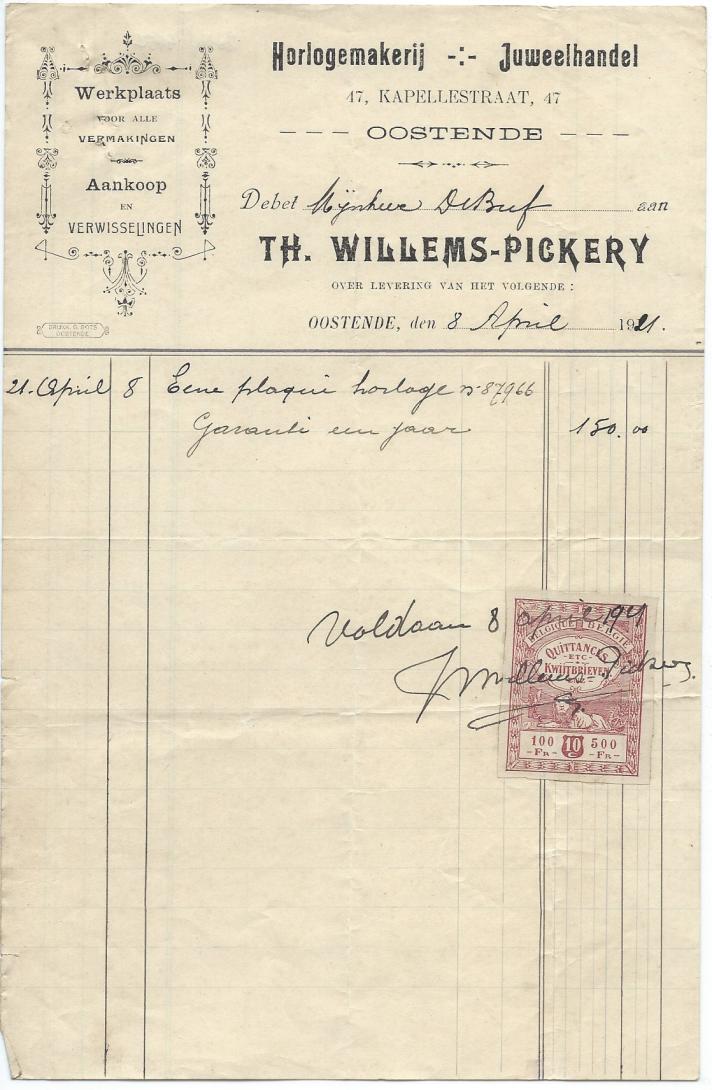 Horlogemakerij -:- Juweelhandel
47, KAPELLESTRAAT, 47
--- OOSTENDE ---
Werkplaats
VOOR ALLE
VERMAKINGEN
Aankoop
EN
VERWISSELINGEN
DRUKK. G. BOTS
OOSTENDE
Debet Mijnheer De Bref aan
TH. WILLEMS-PICKERY
OVER LEVERING VAN HET VOLGENDE :
OOSTENDE, den 8 April 1921.
21. April 8 Eene plaqué horloge no 87966
Garanti een jaar 150.00
Voldaan 8 april 1921
Th Willems Pickery
BELGIQUE BELGIE
QUITTANCES
-ETC-
KWIJTBRIEVEN
100 10 500
-FR- -FR-